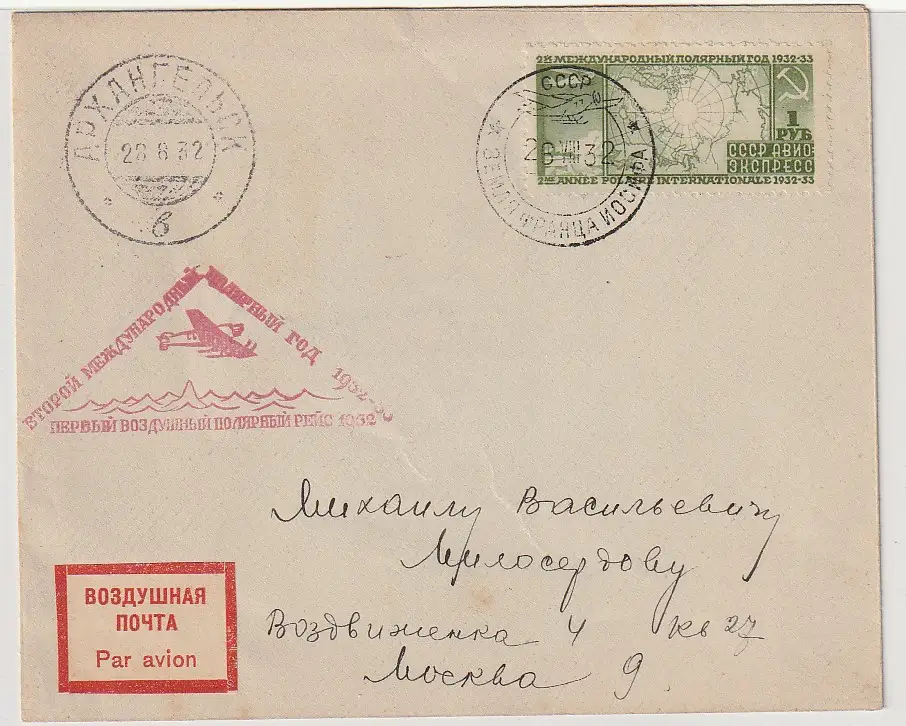 АРХАНГЕЛЬСК
28 8 32
б
2й МЕЖДУНАРОДНЫЙ ПОЛЯРНЫЙ ГОД 1932-33
1
РУБ
СССР АВИО
ЭКСПРЕСС
2ME ANNÉE POLAIRE INTERNATIONALE 1932-33
СССР
26 VIII 32
ЗЕМЛЯ ФРАНЦА ИОСИФА
ВТОРОЙ МЕЖДУНАРОДНЫЙ ПОЛЯРНЫЙ ГОД 1932-33
ПЕРВЫЙ ВОЗДУШНЫЙ ПОЛЯРНЫЙ РЕЙС 1932
Михаилу Васильевичу
Милосердову
Воздвиженка 4 кв 27
Москва 9
ВОЗДУШНАЯ
ПОЧТА
Par avion